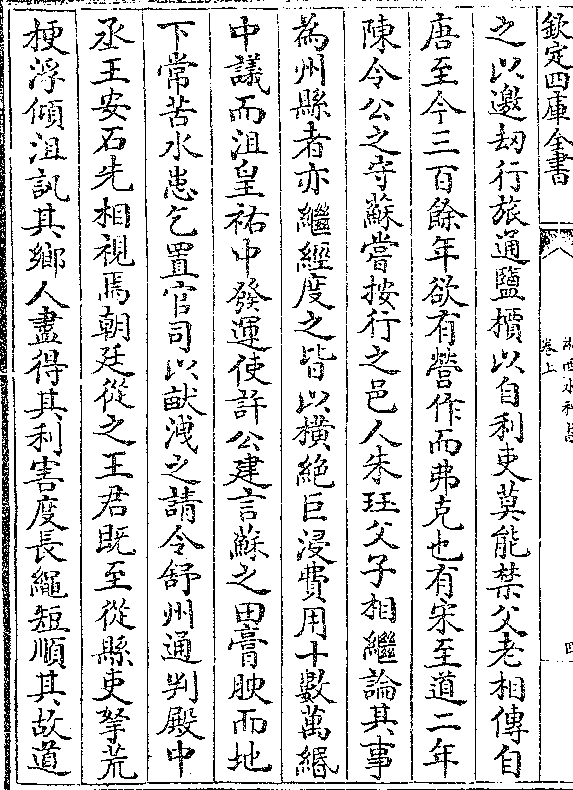 欽定四庫全書
浙西水利書
卷上
四
之以邀刼行旅通鹽櫝以自利吏莫能禁父老相傳自
唐至今三百餘年欲有營作而弗克也有宋至道二年
陳令公之守蘇嘗按行之邑人朱珏父子相繼論其事
為州縣者亦繼經度之皆以橫絕巨浸費用十數萬緡
中議而沮皇祐中發運使許公建言蘇之田膏腴而地
下常苦水患乞置官司以畎洩之請令舒州通判殿中
丞王安石先相視焉朝廷從之王君既至從縣吏拏荒
梗浮傾沮訊其鄉人盡得其利害度長繩短順其故道